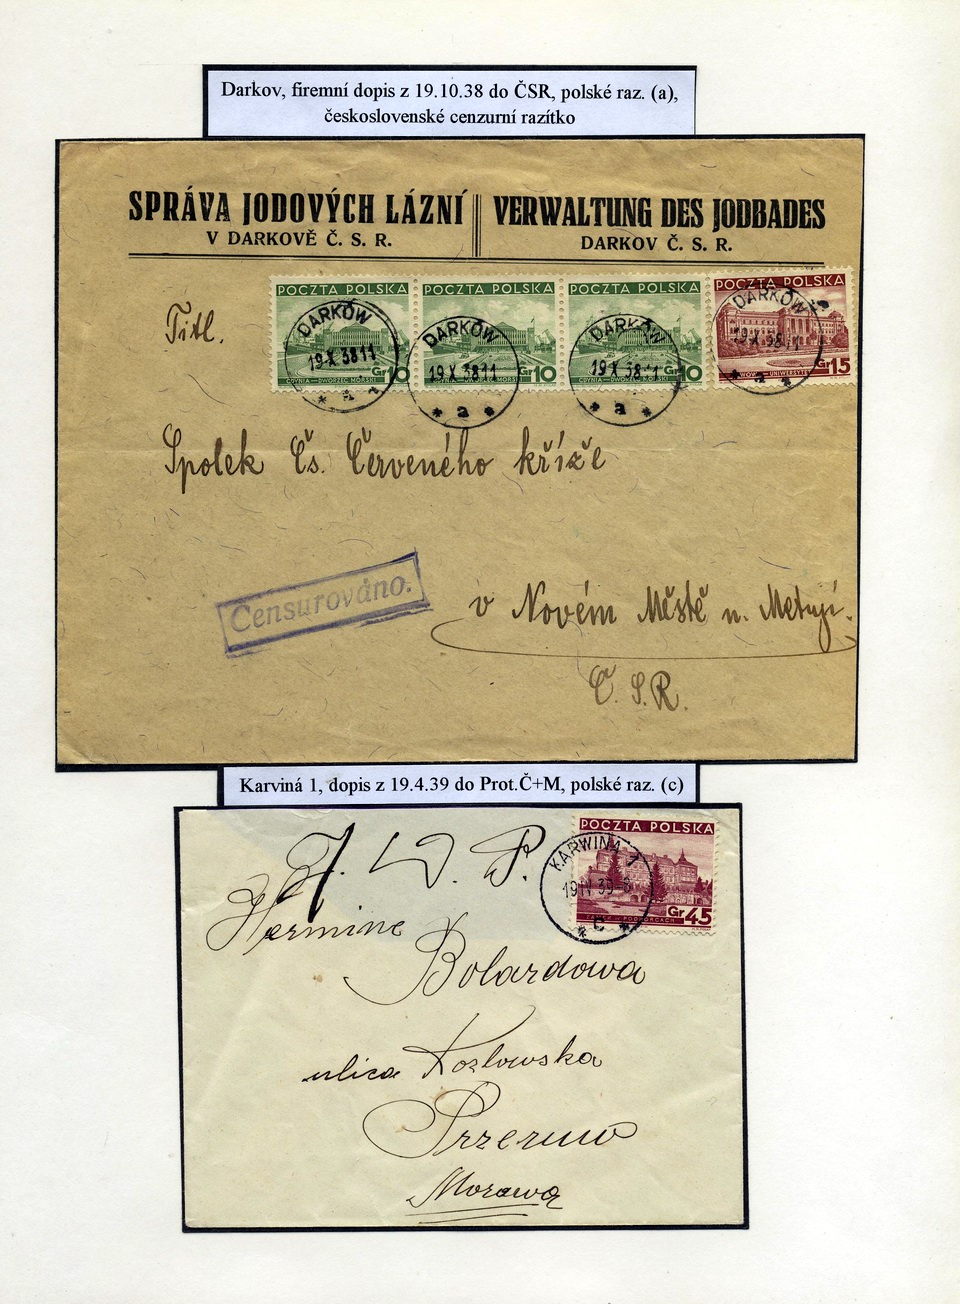 Darkov, firemní dopis z 19.10.38 do ČSR, polské raz. (a),
československé cenzurní razítko
SPRÁVA JODOVÝCH LÁZNÍ
V DARKOVĚ Č. S. R.
VERWALTUNG DES JODBADES
DARKOV Č. S. R.
POCZTA POLSKA POCZTA POLSKA POCZTA POLSKA POCZTA POLSKA
DARKÓW DARKÓW DARKÓW DARKÓW
19.X.38 11 19.X.38 11 19.X.38 11 19.X.38
Gr 10 Gr 10 Gr 10 Gr 15
GDYNIA—DWORZEC MORSKI
* a * * a * * a * * a *
Titl.
Spolek Čs. Červeného kříže
Censurováno.
v Novém Městě n. Metují.
Č. S. R.
Karviná 1, dopis z 19.4.39 do Prot.Č+M, polské raz. (c)
POCZTA POLSKA
KARWINA 1
19 IV 39-8
Gr 45
* c *
Hermine
Bolardowa
ulica Kozlowska
Przeruw
Morawa